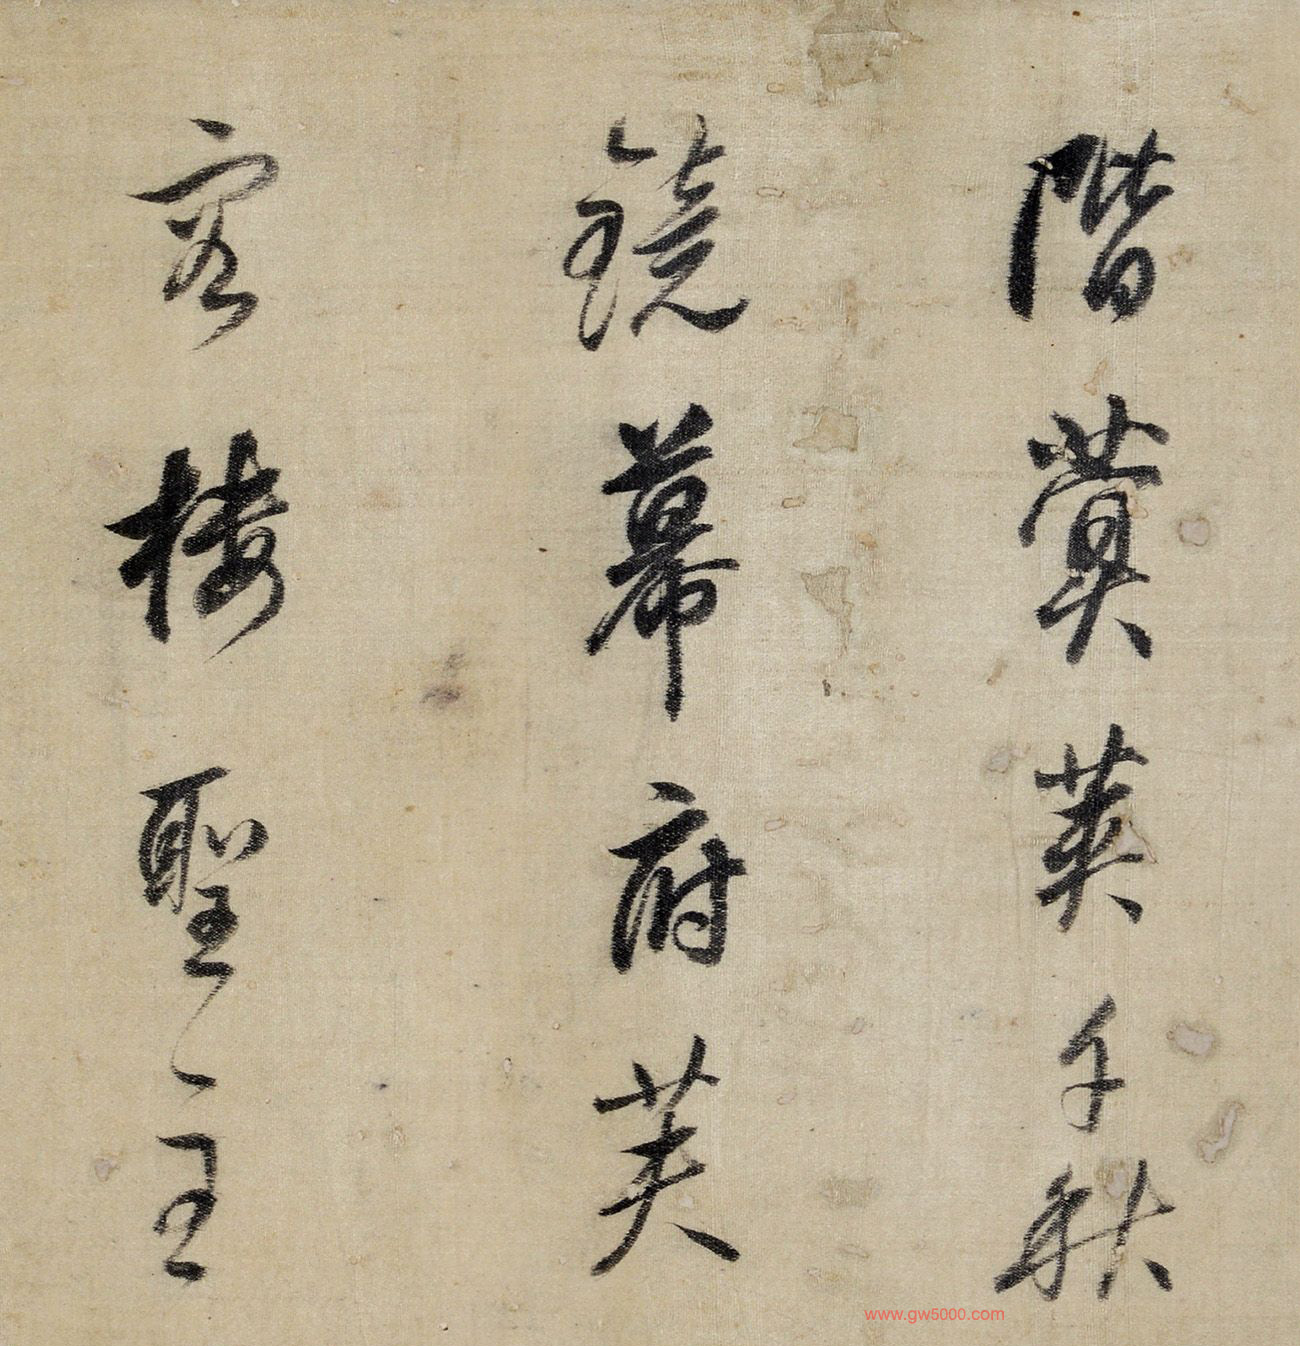 階蓂莢千秋
鏡幕府芙
容樓聖主
www.gw5000.com